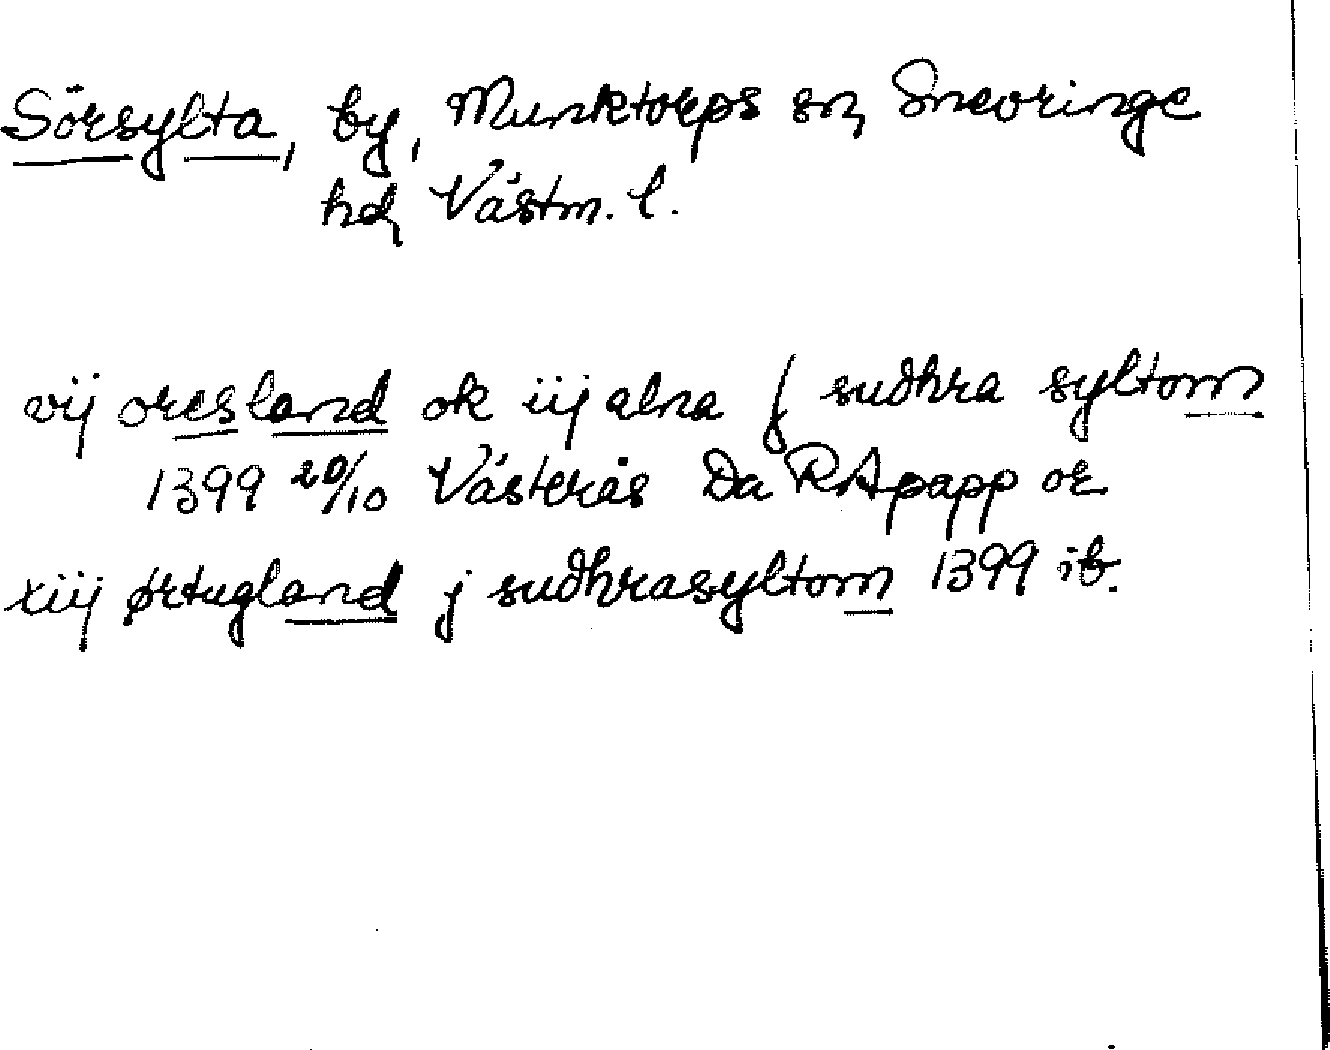 Sörsylta, by, Munktorps sn, Snevringe
hd, Västm. l.
vij øresland ok iij alna j sudhra syltom
1399 20/10 Västerås Da RApapp or
xiij ørtugland j sudhrasyltom 1399 ib.